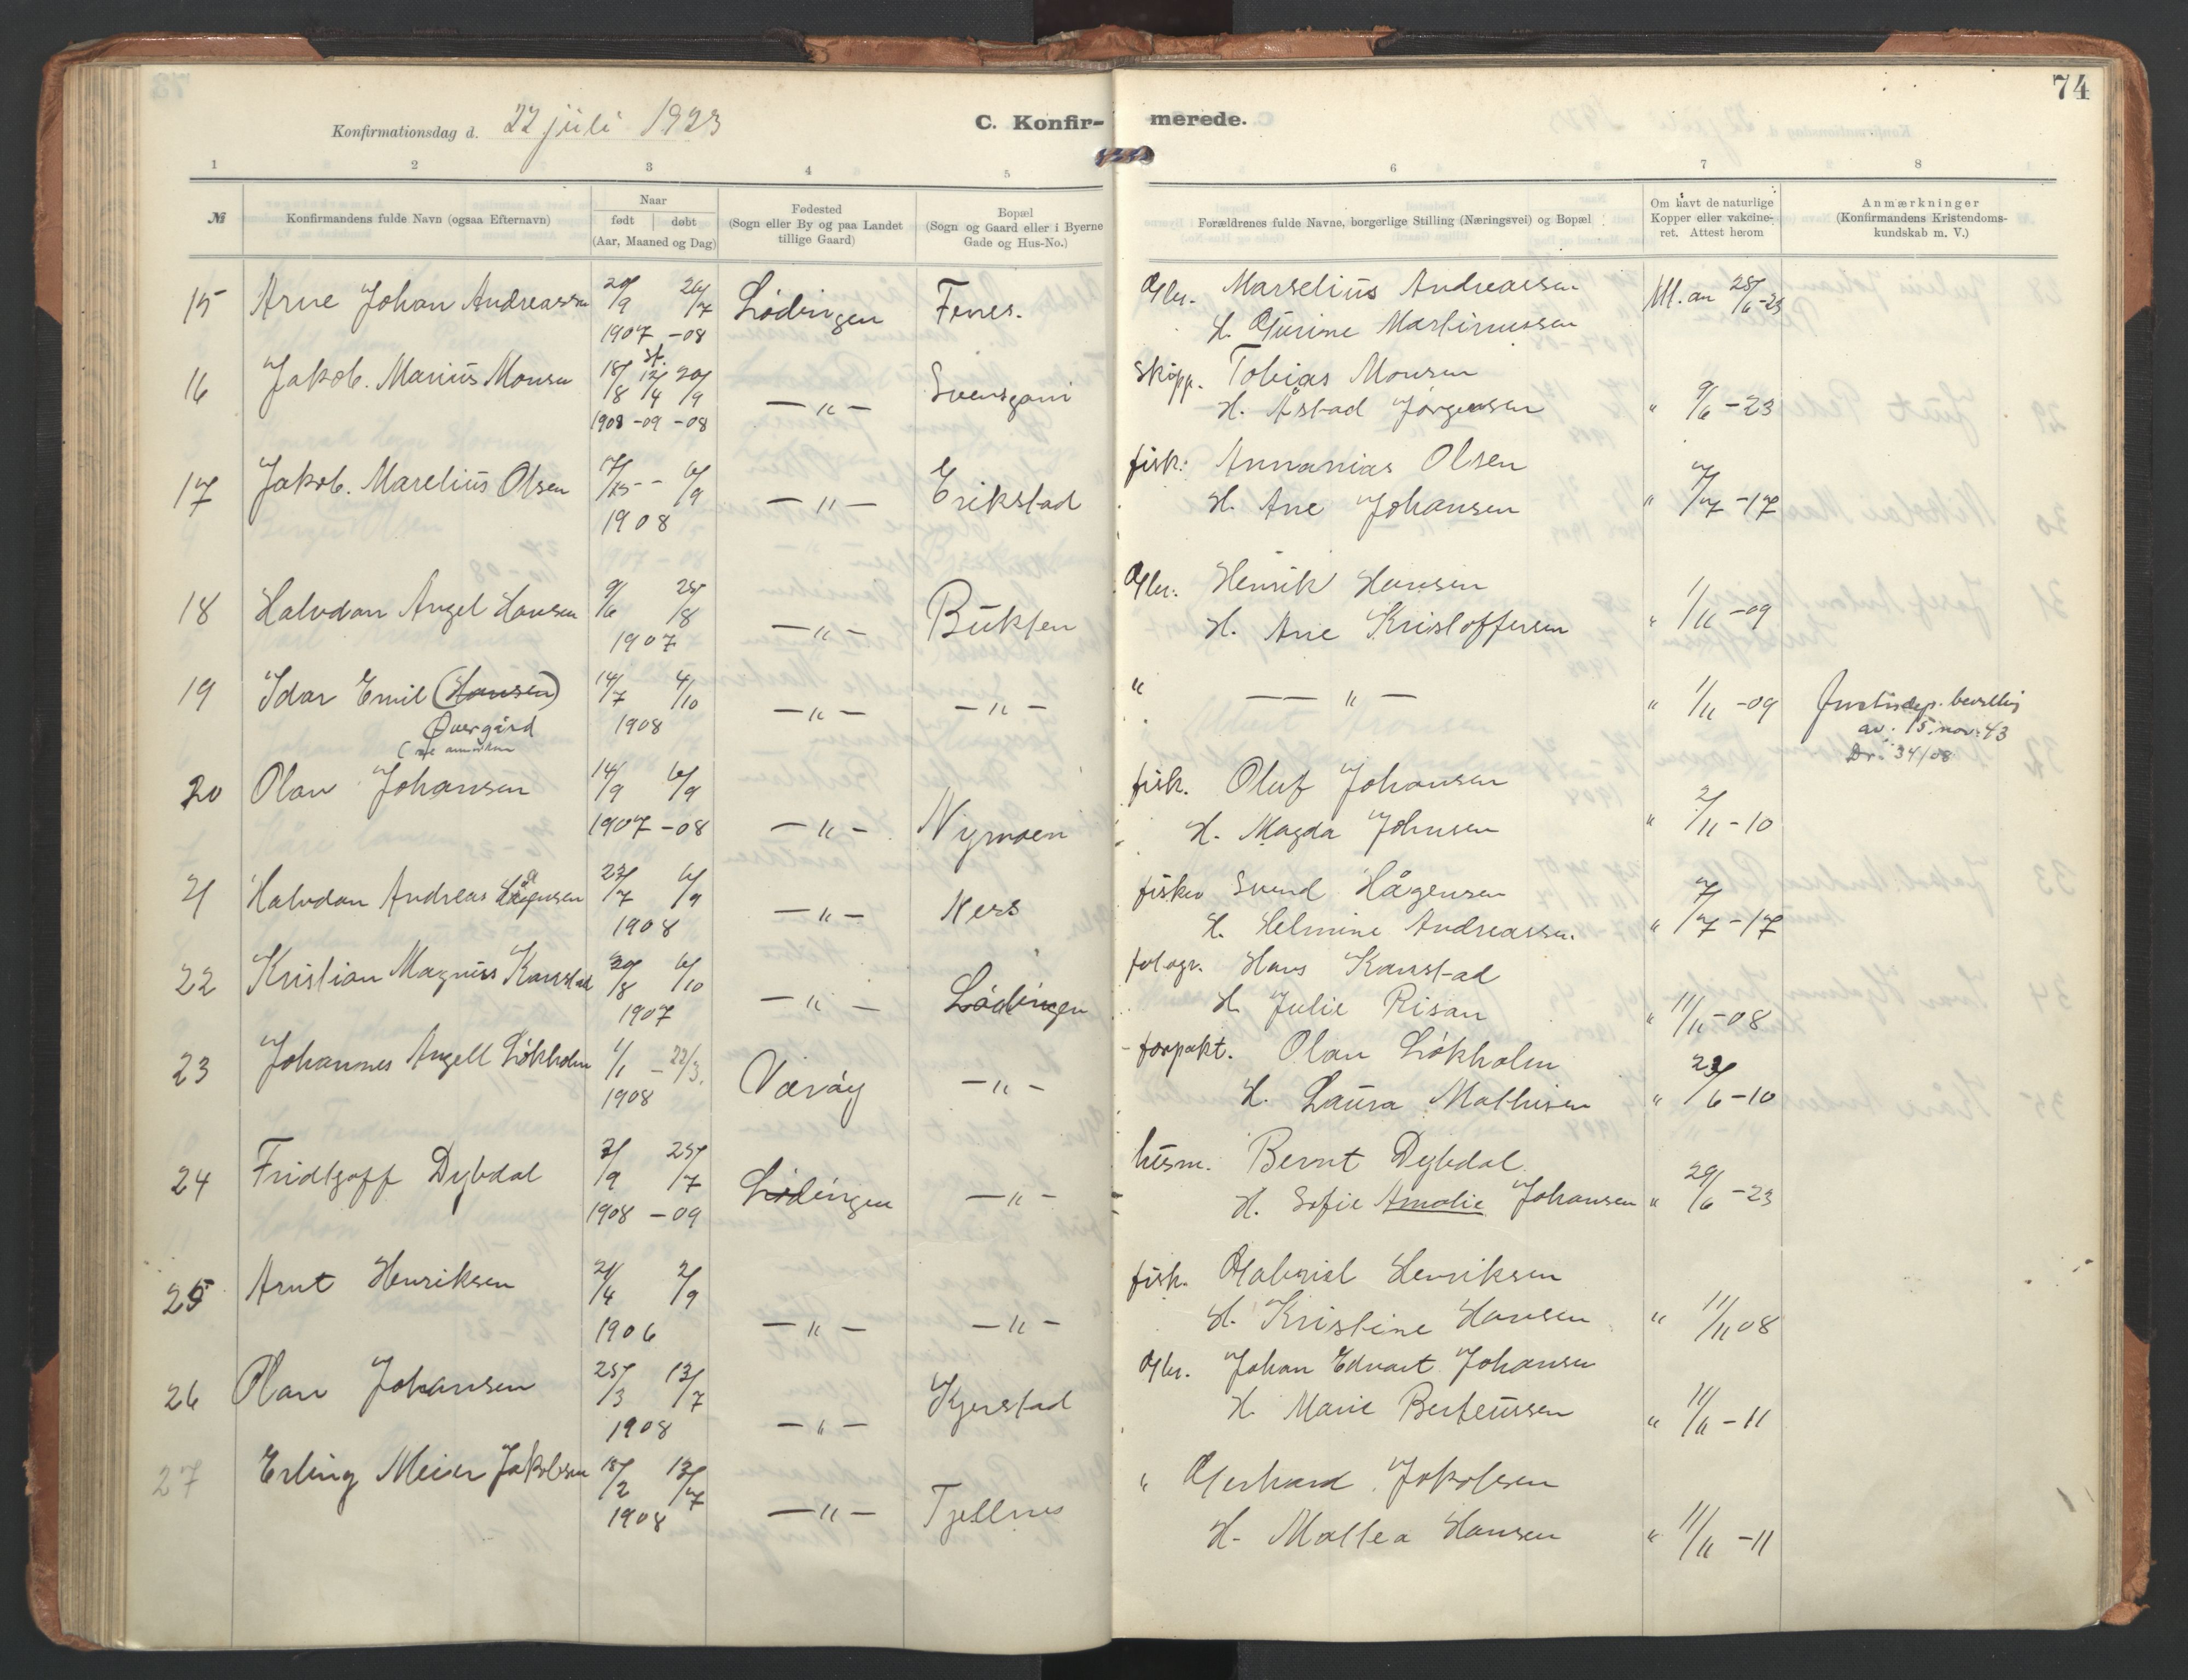 74
Konfirmationsdag d. 22 juli 1923
C. Konfir- merede.
1 2 3 4 5 6 7 8
№
Konfirmandens fulde Navn (ogsaa Efternavn)
Naar
født | døbt
(Aar, Maaned og Dag)
Fødested
(Sogn eller By og paa Landet
tillige Gaard)
Bopæl
(Sogn og Gaard eller i Byerne
Gade og Hus-No.)
Forældrenes fulde Navne, borgerlige Stilling (Næringsvei) og Bopæl
Om havt de naturlige
Kopper eller vakcine-
ret. Attest herom
Anmærkninger
(Konfirmandens Kristendoms-
kundskab m. V.)
15 Arne Johan Andreassen 20/9 26/7 Lødingen Fenes. Gbr. Marselius Andreassen
1907 -08 H. Gurine Martinussen
16 Jakob. Marius Monsen 18/8 st. 12/4 20/9 — " — Skipp. Tobias Monsen
1908 -09 -08 H. Åstad Jørgensen " 9/6 -23
17 Jakob. Marelius Olsen 17/15 - 6/9 — " — Erikstad fisk. Annanias Olsen
1908 H. Ane Johansen " 7/7 -17
18 Halvdan Angel Hansen 9/6 25/8 — " — Bukten Gbr. Henrik Hansen
1907 H. Ane Kristoffersen " 1/11 -09
19 Idar Emil (Hansen) 14/7 4/10 — " — — " — " — " — " 1/11 -09 Justisdep. bevilling
Øvergård 1908 av. 15. nov. 43
Dr. 34/08
20 Olav Johansen 14/9 6/9 fisk. Oluf Johansen
1907 -08 — " — Nymoen H. Magda Johnsen " 2/11 -10
21 Halvdan Andreas Hågensen 23/7 6/9 — " — Ness fisker Svend Hågensen
1908 H. Helmine Andreassen. " 7/7 -17
22 Kristian Magnus Kanstad 20/8 6/10 — " — Lødingen fotogr. Hans Kanstad
1907 H. Julie Risan " 11/11 -08
23 Johannes Angell Løkholm 1/1 - 22/3. Værøy — " — forpakt. Olav Løkholm
1908 H. Laura Mathisen " 23/6 -10
24 Fridtjoff Dybdal 7/9 25/7 Lødingen — " — husm. Bernt Dybdal
1908 -09 H. Sofie Amalie Johansen " 29/6 -23
25 Arnt Henriksen 21/4 2/9 fisk. Gabriel Henriksen
1906 — " — — " — H. Kristine Hansen " 11/11 08
26 Olav Johansen 25/3 13/7 Kjerstad Gbr. Johan Edvart Johansen
1908 — " — H. Marie Berteussen " 11/11 -11
27 Erling Meier Jakobsen 18/2 13/7 " Gerhard Jakobsen
1908 — " — Tjellnes H. Maltea Hansen " 11/11 -11